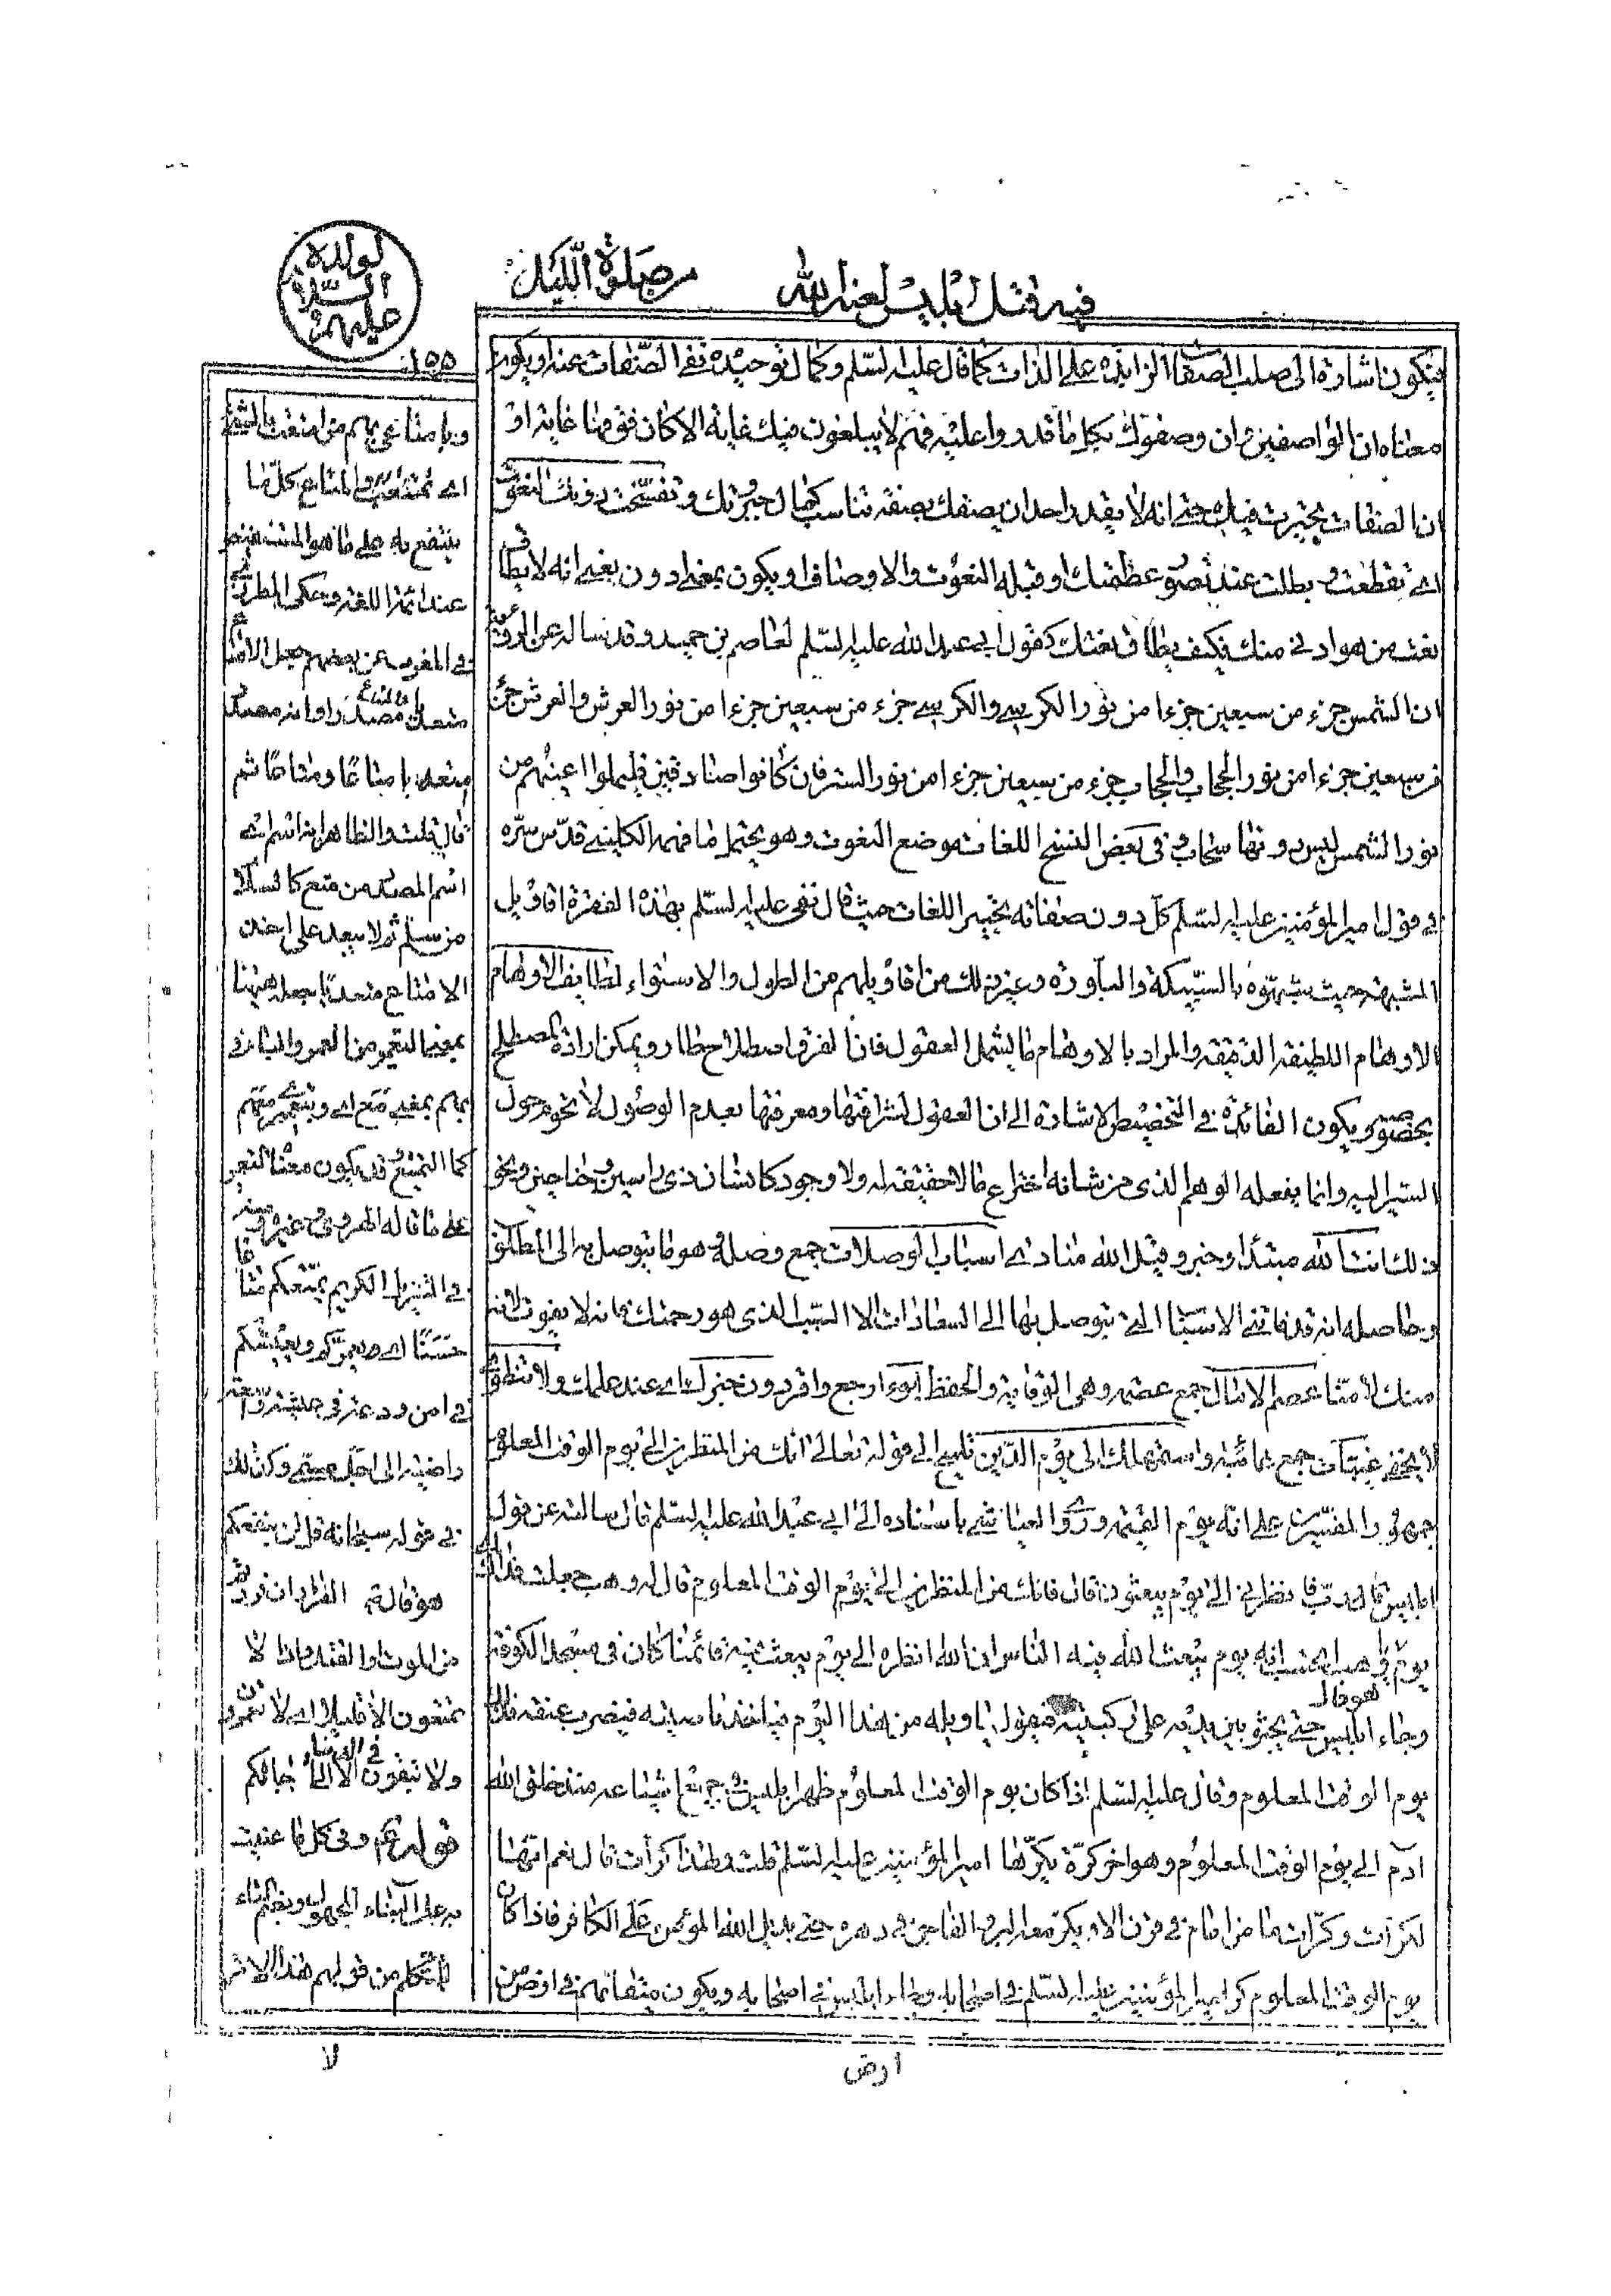 فيه قتل ابليس لعنه الله
من صلوة الليل
لولده السلام عليهم
١٥٥
فيكون اشارة الى سلب الصفات الزايدة على الذات كما قال عليه السلم وكمال توحيده نفى الصفات عنه او يكون
معناه ان الواصفين وان وصفوك بكل ما قدروا عليه فهم لا يبلغون فيك غاية الا كان فوقها غاية او
ان الصفات تحيرت فيك حتى انه لا يقدر واحد ان يصفك بصفة تناسب كمال وتفسخت دونك النعوت
اى تقطعت وبطلت عند تصور عظمتك او قبله النعوت والاوصاف او يكون بمعنى دون يعنى انه لا يطاق
نعت من هو ادنى منك فكيف يطاق نعتك كقول ابى عبد الله عليه السلم لعاصم بن حميد وقد ساله عن الرؤية
ان الشمس جزء من سبعين جزءا من نور الكرسى والكرسى جزء من سبعين جزءا من نور العرش والعرش جزء
من سبعين جزءا من نور الحجاب والحجاب جزء من سبعين جزءا من نور الستر فان كانوا صادقين فليملوا اعينهم من
نور الشمس ليس دونها سحاب وفى بعض النسخ اللغات موضع النعوت وهو يحتمل ما فهمه الكلينى قدس سره
فى قول امير المؤمنين عليه السلم كل دون صفاته تحبير اللغات حيث قال نفى عليه السلم بهذه الفقرة اقاويل
المشبهة حيث شبهوه بالسبيكة والبلورة وغير ذلك من اقاويلهم من الطول والاستواء لطايف الاوهام
الاوهام اللطيفة الدقيقة والمراد بالاوهام ما يشمل العقول فان الفرق اصطلاح طار ويمكن ارادة المصطلح
بخصوصه ويكون الفائدة فى التخصيص الاشارة الى ان العقول لشرافتها ومعرفتها بعدم الوصول لا تحوم حول
السير اليه وانما يفعله الوهم الذى من شانه اختراع ما لا حقيقة له ولا وجود كانسان ذى راسين وجناحين ونحو
ذلك انت الله مبتدا وخبر وقيل الله منادى اسباب الوصلات جمع وصلة وهو ما يتوصل به الى المطلوب
وحاصله انه قد فاتنى الاسباب التى يتوصل بها الى السعادات الا السبب الذى هو رحمتك فانه لا يفوت لانه
منك لا منا عصم الامال جمع عصمة وهى الوقاية والحفظ ابوء ارجع واقر دون خبرك اى عند علمك ولا تنطوى
لا يخفى غيبات جمع غائبة واستمهلك الى يوم الدين تلميح الى قوله تعالى انك من المنظرين الى يوم الوقت المعلوم
جمهور المفسرين على انه يوم القيمة وروى العياشى باسناده الى ابى عبد الله عليه السلم قال سالته عن قول
ابليس قال رب فانظرنى الى يوم يبعثون قال فانك من المنظرين الى يوم الوقت المعلوم قال له وهب جعلت فداك اى
يوم هو قال يا وهب اتحسب انه يوم يبعث الله فيه الناس ان الله انظره الى يوم يبعث فيه قائمنا كان فى مسجد الكوفة
وجاء ابليس حتى يجثو بين يديه على ركبتيه فيقول يا ويله من هذا اليوم فياخذ ناصيته فيضرب عنقه فذلك
يوم الوقت المعلوم وقال عليه السلم اذا كان يوم الوقت المعلوم ظهر ابليس فى جميع اشياعه منذ خلق الله
آدم الى يوم الوقت المعلوم وهو اخر كرة يكرها امير المؤمنين عليه السلم قلت وانها كرات قال نعم انها
لكرات وكرات ما من امام فى قرن الا ويكر معه البر والفاجر فى دهره حتى يديل الله المؤمن على الكافر فاذا كان
يوم الوقت المعلوم كر امير المؤمنين عليه السلم فى اصحابه وجاء ابليس فى اصحابه ويكون ميقاتهم فى ارض من
ارض
وبامتاعى بهم من
اى تمتعت والمتاع كل ما
ينتفع به على ما هو
عند ائمة اللغة وحكى المطرزى
فى المغرب عن بعضهم جعل الامتاع
والمتاع
متعديا بامتاعا ومتاعا ثم
قال قلت والظاهر انه اسم
اسم المصدر من متع كالسلام
من سلم ثم لا يبعد على اخذ
الامتاع متعديا جعله ههنا
بمعنى التعمير من العمر والباء فى
بهم بمعنى مع اى وبتعميرى معهم
كما التمتيع قد يكون معناه التعمير
على ما قاله الهروى وغيره
فى التنزيل الكريم يمتعكم متاعا
حسنا اى يعمركم ويعيشكم
فى امن ودعة
الى اجل مسمى وكذلك
فى قوله سبحانه قل لن ينفعكم
الفرار ان فررتم
من الموت او القتل واذا لا
تمتعون الا قليلا اى لا تعمرون
ولا تبقون فى الدنيا الا الى اجالكم
قوله وفى كل ما عنيت
به على البناء للمجهول
للمتكلم من قولهم هذا الامر
لا